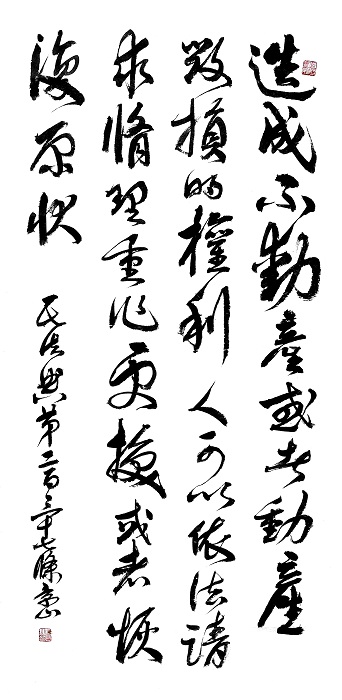 造成不動產或者動產
毀損的權利人可以依法請
求脩理重作更換或者恢
復原狀
民法典第二百三十七條